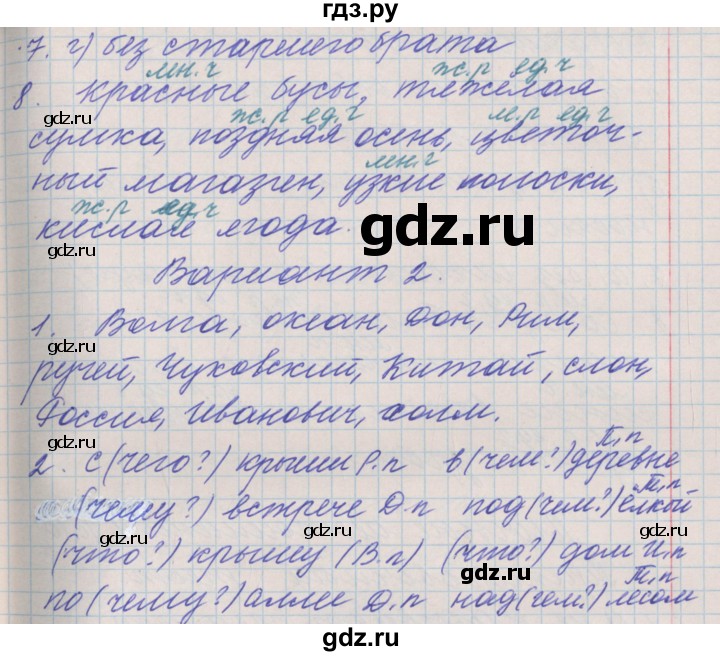 гдз.ру
7. г) без старшего брата
мн.ч ж.р ед.ч
8. красные бусы, тяжёлая
gdz.ru
ж.р ед.ч м.р ед.ч
gdz.ru
сумка, поздняя осень, цветоч-
gdz.ru
мн.ч
ный магазин, узкие полоски,
ж.р ед.ч
gdz.ru
кислая ягода.
gdz.ru
Вариант 2.
gdz.ru
1. Волга, океан, Дон, Рим,
gdz.ru
ручей, Чуковский, Китай, слон,
gdz.ru
Россия, Иванович, холм.
gdz.ru
П.п
2. с (чего?) крыши Р.п в (чём?) деревне
gdz.ru
Т.п
(чему?) встрече Д.п под (чем?) ёлкой
gdz.ru
(что?) крышу (В.п) (что?) дом И.п
gdz.ru
Т.п
по (чему?) аллее Д.п над (чем?) лесом
gdz.ru
gdz.ru